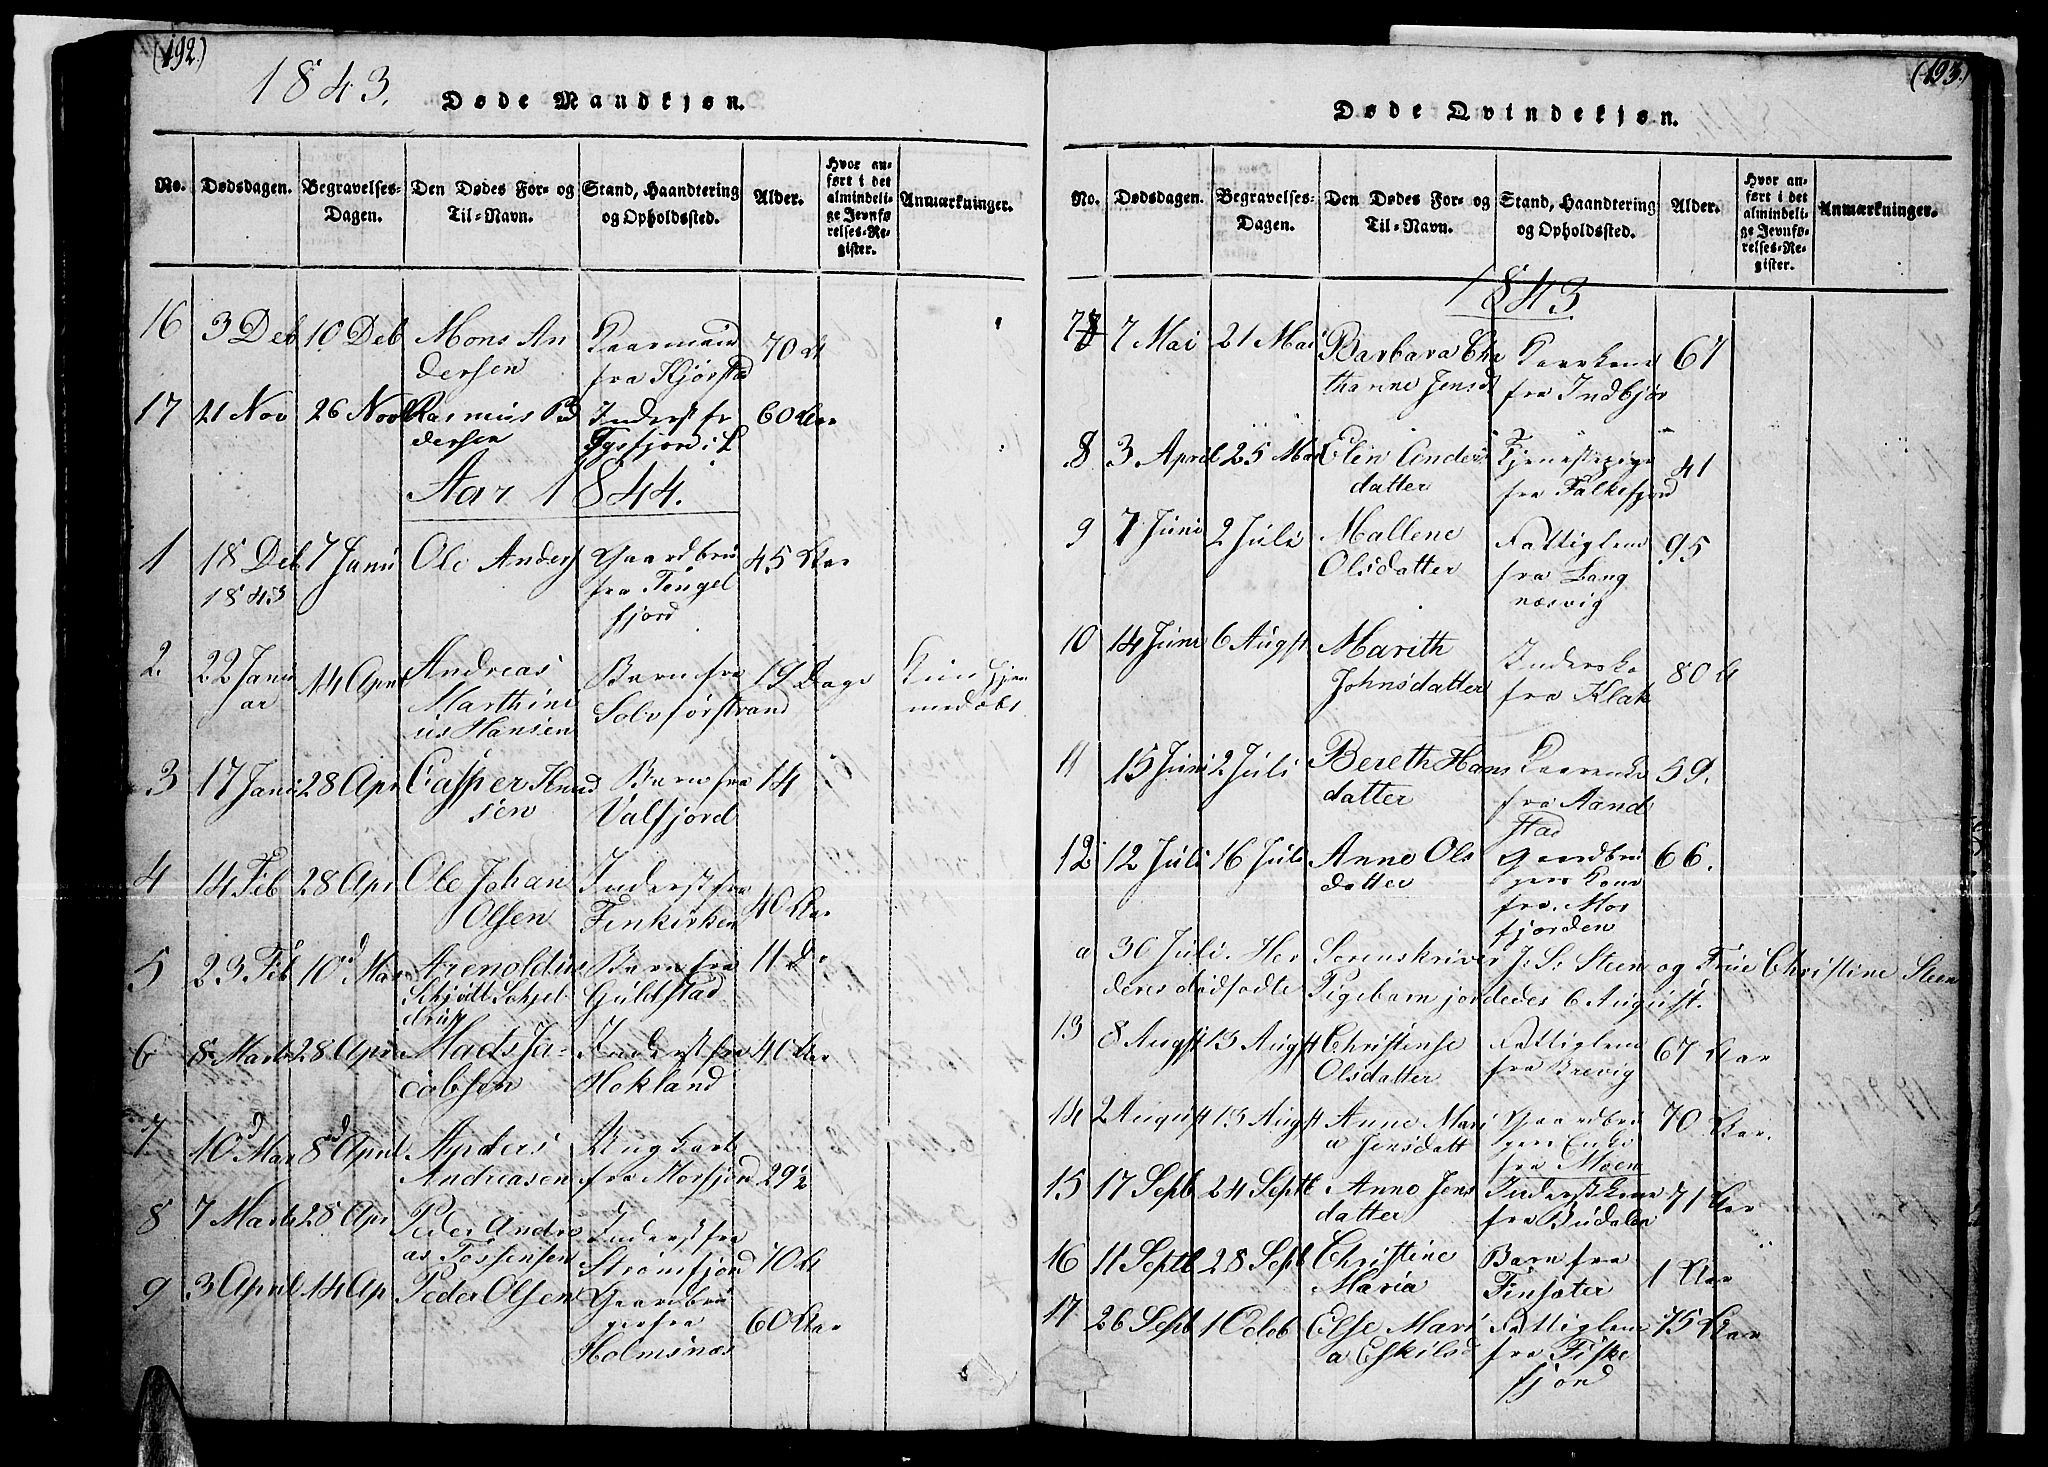 (192)
1843.
Døde Mandkjøn.
No.
Dødsdagen.
Begravelses-
Dagen.
Den Dødes For- og
Til-Navn.
Stand, Haandtering
og Opholdssted.
Alder.
Hvor an-
ført i det
almindeli-
ge Jevnfø
relses-Re-
gister.
Anmærkninger.
16 3 Deb 10 Deb Mons An
dersen
fra Kjørstad
70
17 21 Nov 26 Nov Rasmus Pe
dersen
Inderst fr
Tysfjord i L
60 Aar
Aar 1844.
1 18 Deb 7 Janu Ole Anders Gaardbru 45 Aar
1843
fra Tengel
fjord
2. 22 Janu
ar
14 Apr Andreas
Marthine
us Hansen
Barn fra
Solvførstrand
19 Dage
3 17 Janu 28 Apr Casper Knud
sen
Barn fra
Valfjord
14
4 14 Feb 28 Apr Ole Johan
Olsen
Inderst fra
Finkirken
40 Aar
5 23 Feb 10d Mar Arenoldus
Schjött Schjel
drup
Barn fra
Guldstad
11 D
6 8 Marts 28 Apr Mads Ja-
cobsen
Inderst fra
Hokland
40 Aar
7. 10d Mar 8d April Anders
Andreasen
Ungkarl
fra Morfjord
29½
8 7 Marts 28 Apr Peder Andre
as Tossensen
Inderst fra
Strömfjord
70
9 3 April 14 Ap Peder Olsen Gaardbru
ger fra
Holmsnæs
60 Aar
(193.)
Døde Qvindekjøn.
No.
Dødsdagen.
Begravelses-
Dagen.
Den Dødes For- og
Til-Navn.
Stand, Haandtering
og Opholdssted.
Alder.
Hvor an-
ført i det
almindeli-
ge Jevnfø-
relses-Re-
gister.
Anmærkninger.
1843.
7 7 Mai 21 Mai Barbara Cha
tharine Jensd
fra Indbjør
67
8 3 April 25 Mar Elin Anders
datter
Tjenestepige
fra Falkefjord
41
9 7 Juni 2 Juli Mallene
Olsdatter
Fattiglem
fra Lang
næsvig
95
10 14 Juni 6 Augst Marith
Johnsdatter
fra Klak
80
11 15 Juni 2 Juli Bereth Hans
datter
fra Aand
stad
59.
12 12 Juli 16 Juli Anne Ols
datter
Gaardbru
gers Kone
fra Mor
fjorden
66.
a 30 Juli. Her Sorenskriver J: S: Steen og Frue Christine Steen
deres dødfødte Pigebarn jordedes 6 August.
13 8 Augst 13 Augst Christense
Olsdatter
Fattiglem
fra Brevig
67 Aar
14 2 August 13 Augst Anne Mari
a Jensdatt
Gaardbru
gers Enke
fra Moen
70 Aar.
15 17 Septb 24 Septb Anne Jens
datter
Inderstkone
fra Budalen
71 Aar
16 11 Septb 28 Septb Christine
Maria
Barn fra
Finsæter
1 Aar
17 26 Septb 1 Octob Else Mari
a Eskilsd
Fattiglem
fra Fiske
fjord
75 Aar